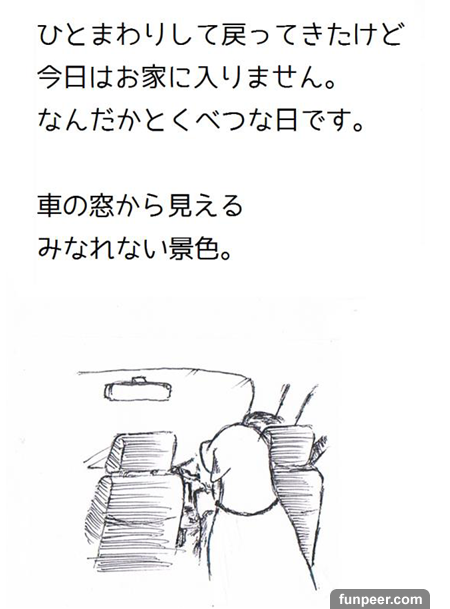 ひとまわりして戻ってきたけど
今日はお家に入りません。
なんだかとくべつな日です。
車の窓から見える
みなれない景色。
funpeer.com